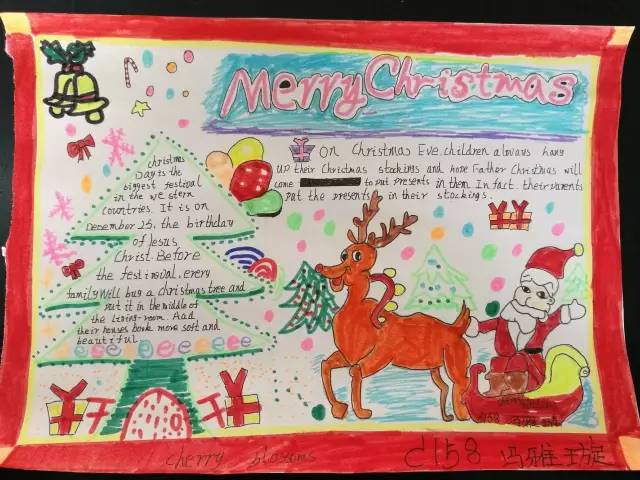 Merry Christmas
On Christmas Eve. children always hang
up their Christmas stockings and hope Father Christmas will
come to put presents in them. In fact their parents
put the presents in their stockings.
christmas
Day is the
biggest festival
in the we stern
countries. It is on
December 25, the birthday
of Jesus
Christ. Before
the festinoval, every
family will buy a christmas tree and
put it in the middle of
the living-room. And
their houses book more soft and
beautiful.
cherry blossoms
d158 冯雅璇